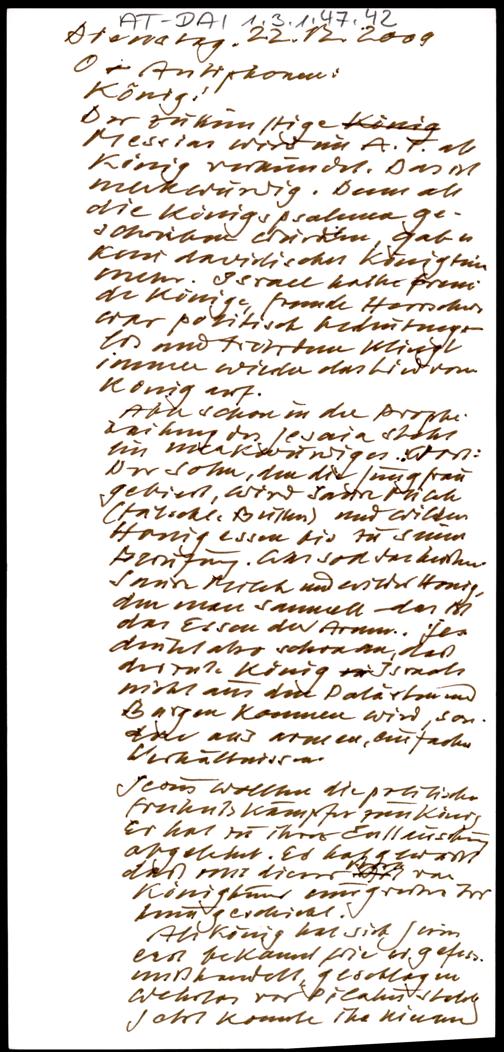 AT-DAI 1.3.1.47.42
Dienstag. 22.12.2009
O-Antiphonen:
König!
Der zukünftige König
Messias wird im A.T. als
König verkündet. Das ist
merkwürdig. Denn als
die Königspsalmen ge-
schrieben wurden, gab es
kein davidisches Königtum
mehr. Israel hatte frem-
de Könige, fremde Herrscher
war politisch bedeutungs-
los und trotzdem klingt
immer wieder das Lied vom
König auf.
Aber schon in der Prophe-
zeihung des Jesaia steht
ein merkwürdiges Wort:
Der Sohn, den die Jungfrau
gebiert, wird saure Milch
(falsche Butter) und wilden
Honig essen bis zu seiner
Berufung. Was soll das
Saure Milch und wilder Honig,
den man sammelt das ist
das Essen der Armen. Jes
deutet also schon an, daß
der König Israels
nicht aus den Palästen und
Burgen kommen wird, son-
dern aus armen, einfachen
Verhältnissen
Jesus wollten die politischen
Freiheitskämpfer zum König
Er hat zu ihrer Enttäuschung
abgelehnt. Er hat gewusst
daß mit dieser von
Königtum
geschieht.
Als König hat sich Jesus
erst bekannt, wie er gefes.
mißhandelt, geschlagen
wehrlos vor Pilatus steht
Jetzt konnte ihn niemand